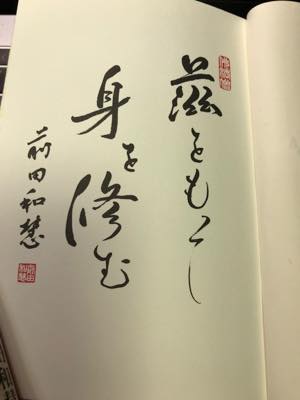 慈をもって
身を修む
前田和慧